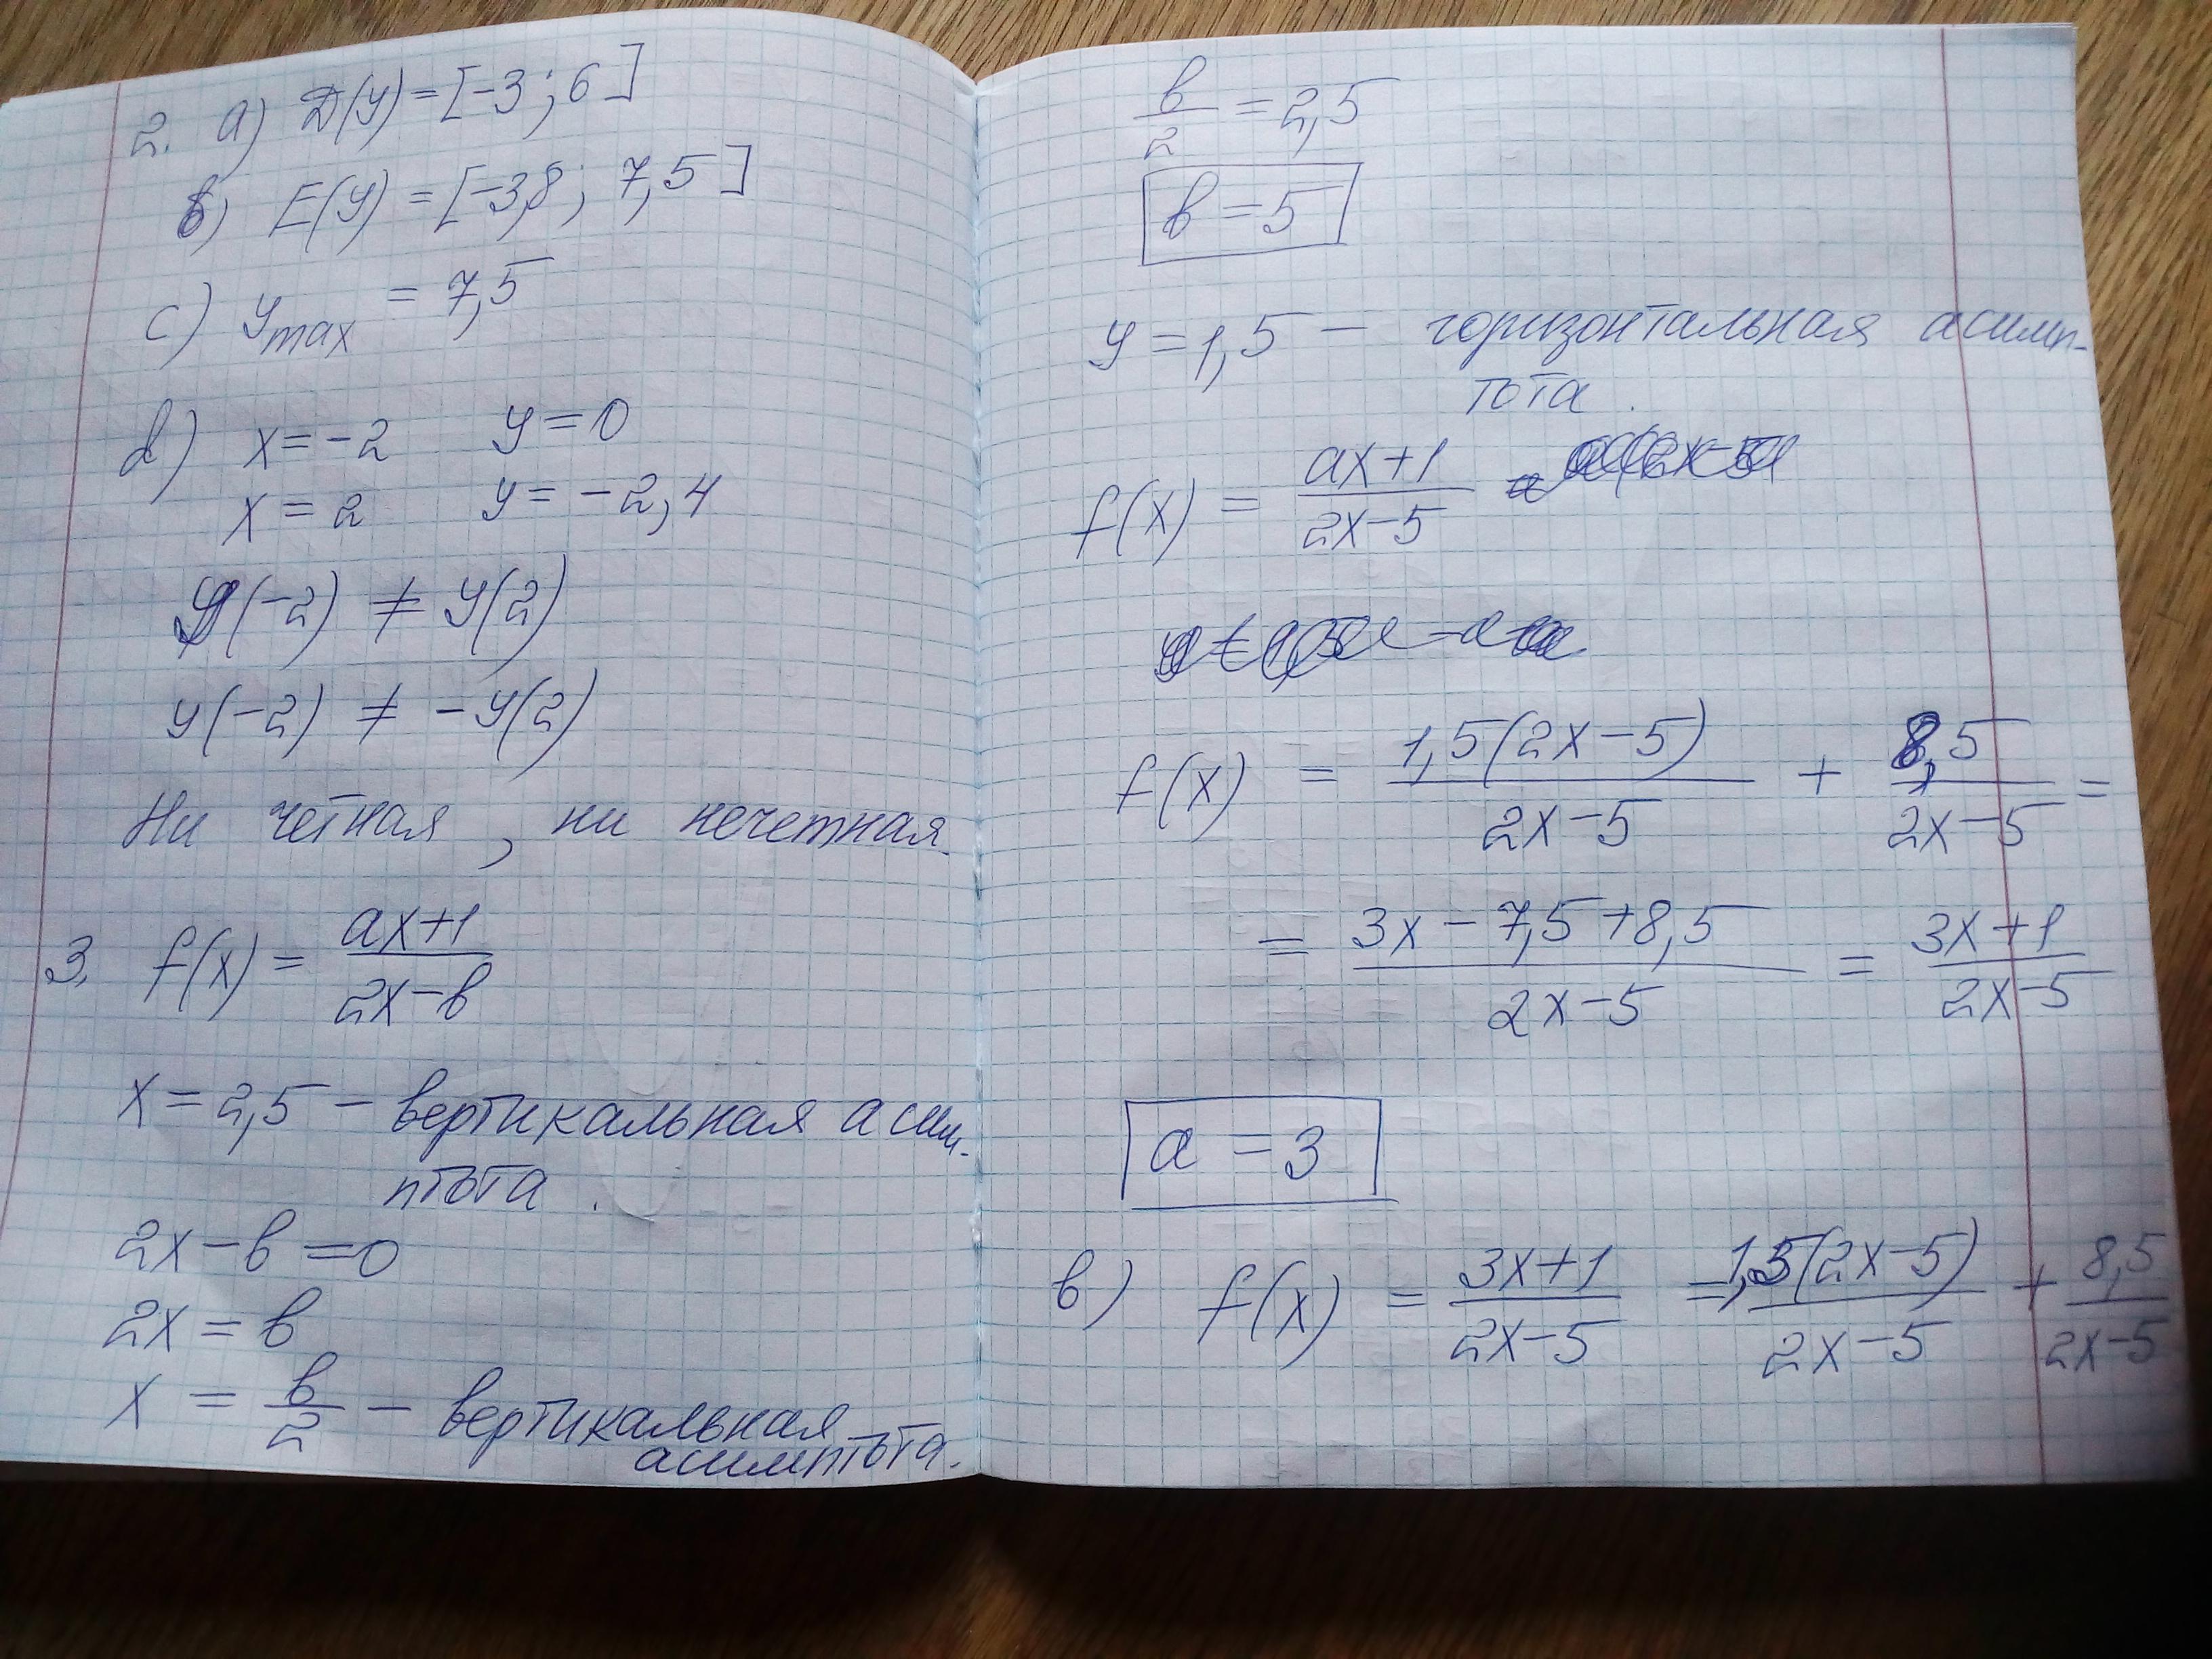 2. a) D(y) = [-3; 6]
b) E(y) = [-3,8; 7,5]
c) y max = 7,5
d) x = -2 y = 0
x = 2 y = -2,4
y(-2) ≠ y(2)
y(-2) ≠ -y(2)
Ни четная, ни нечетная.
3. f(x) = (ax+1)/(2x-b)
x = 2,5 - вертикальная асим-
птота.
2x - b = 0
2x = b
x = b/2 - вертикальная
асимптота.
b/2 = 2,5
b = 5
y = 1,5 - горизонтальная асимп-
тота.
f(x) = (ax+1)/(2x-5)
f(x) = 1,5(2x-5)/(2x-5) + 8,5/(2x-5) =
= (3x - 7,5 + 8,5)/(2x-5) = (3x+1)/(2x-5)
a = 3
b) f(x) = (3x+1)/(2x-5) = 1,5(2x-5)/(2x-5) + 8,5/(2x-5)